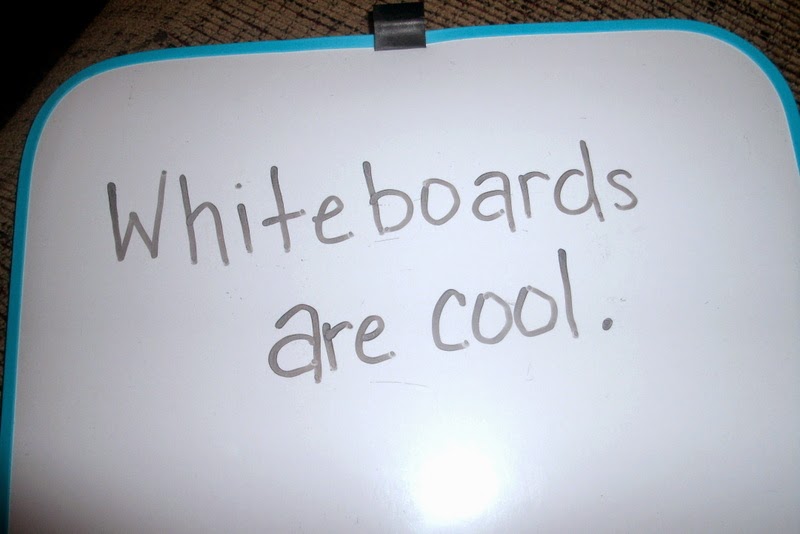 Whiteboards
are cool.